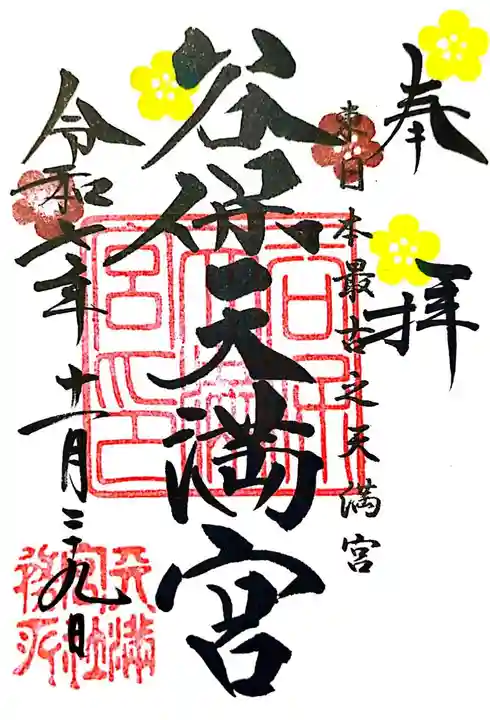 奉拝
東日本最古之天満宮
谷保天満宮
令和六年十一月二十九日
谷保天満宮印
天満宮社務所